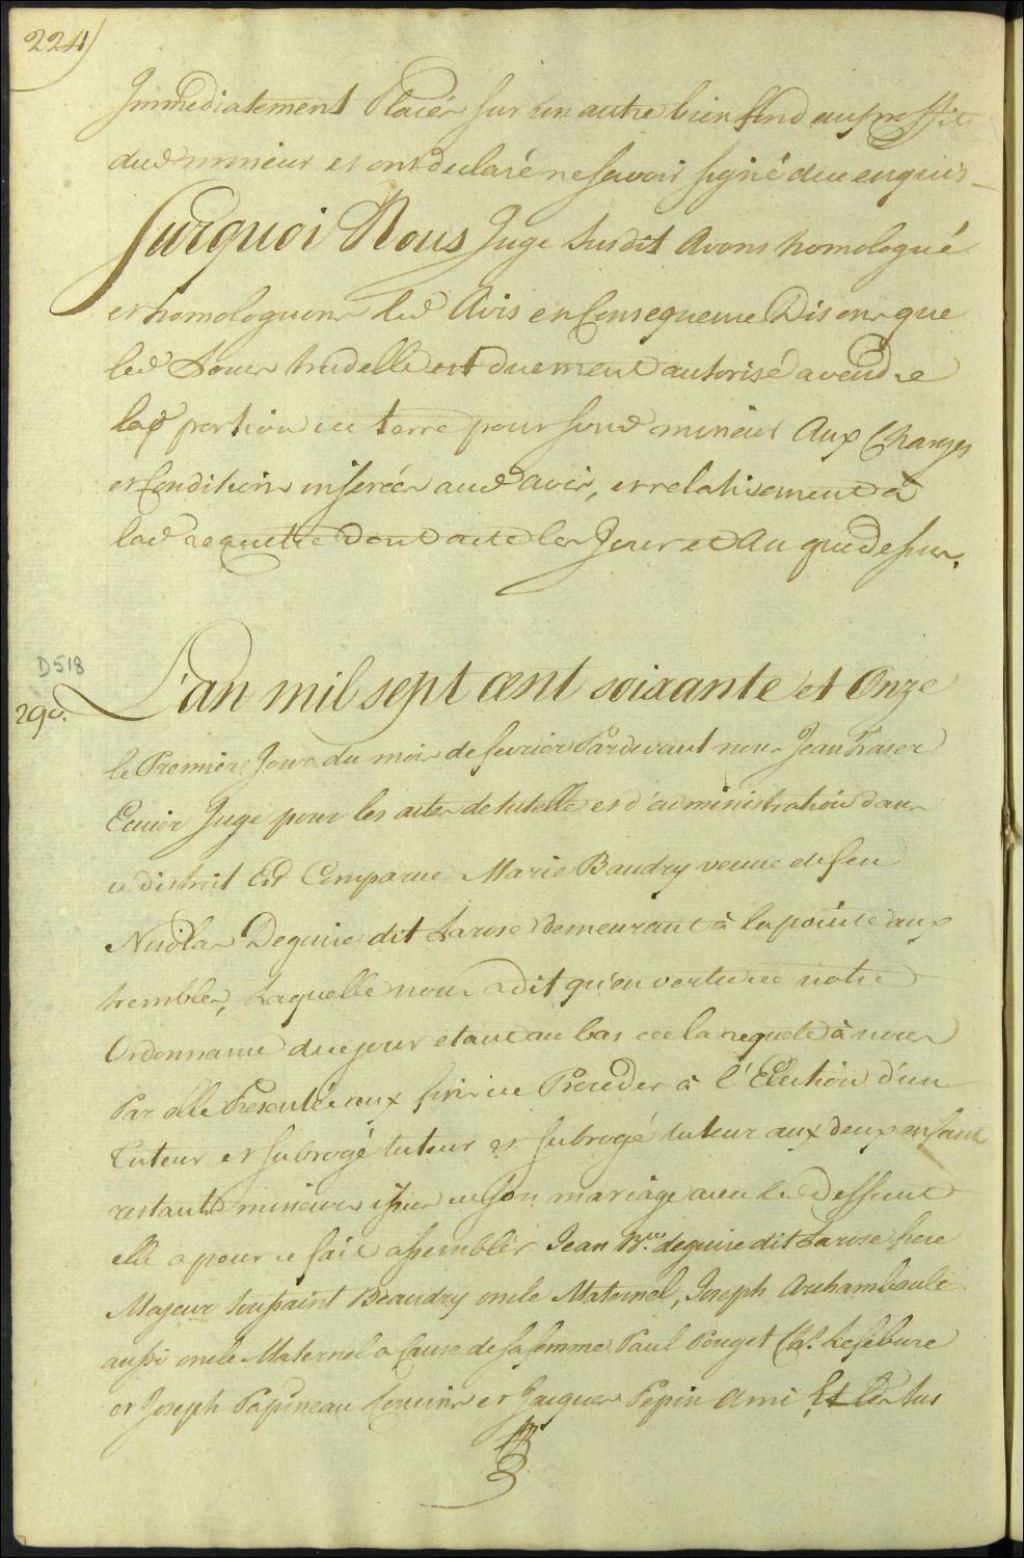 224)
Immediatement Placés sur un autre bien fond au proffit
dud mineur et ont declaré ne savoir signé de ce enquis
Surquoi Nous Juge Susdit Avons homologué
et homologuons led Avis en Consequence Disons que
led Louis trudelle est duement autorisé a vendre
lad portion de terre pour sond mineur Aux Charges
et Condition inserées aud avis, et relativement a
lad requette dont acte les Jour et An que dessus.
D518
290.
L'an mil sept cent soixante et Onze
le Premier Jour du mois de fevrier Pardevant nous Jean Fraser
Ecuier Juge pour les actes de tutelle et d'administration dans
ce district Est Comparue Marie Baudry veuve de feu
Nicolas Deguire dit Larose demeurant à la pointe aux
trembles, Laquelle nous a dit qu'en vertu de notre
Ordonnance de ce jour etant au bas de la requete à nous
Par elle Presentée aux fins de Proceder à l'Election d'un
Tuteur et subrogé tuteur et subrogé tuteur aux deux enfants
restants mineurs issus de son mariage avec led deffunt
elle a pour ce fait assembler Jean Bte deguire dit Larose frere
Majeur toussaint Beaudry oncle Maternel, Joseph Archambault
aussi oncle Maternel a Cause de sa femme Paul Pouget Chs. Lefebvre
et Joseph Papineau Cousins et Jacques Pepin Ami Et Les tus